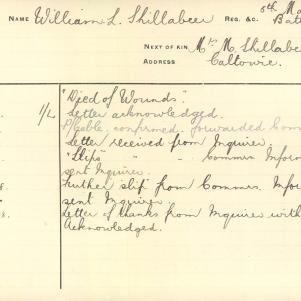 NAME William L. Shillabeer REG. &C. 8th
NEXT OF KIN Mrs M. Shillabe
ADDRESS Caltowie.
"Died of Wounds".
1/2 Letter acknowledged.
Cable, confirmed, forwarded Com
Letter received from Inquirer.
"Slip" " " Commrs Infor
sent Inquirer.
Further slip from Commrs. Infor
sent Inquirer
Letter of thanks from Inquirer with
Acknowledged.